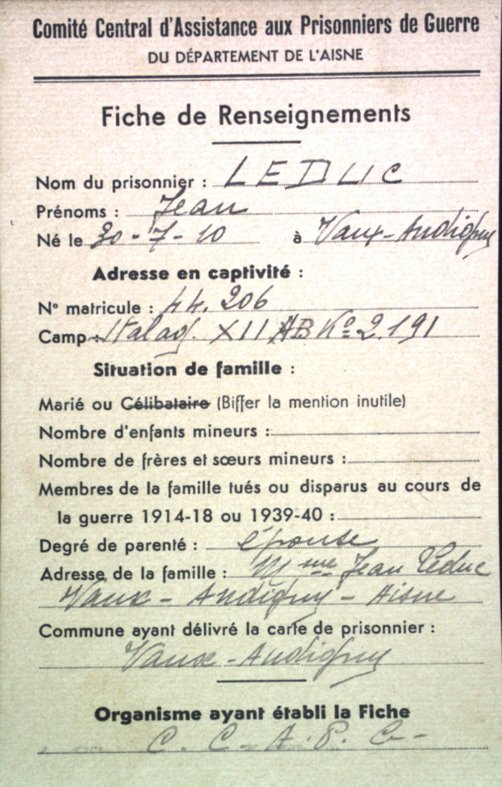 Comité Central d'Assistance aux Prisonniers de Guerre
DU DÉPARTEMENT DE L'AISNE
Fiche de Renseignements
Nom du prisonnier : LEDUC
Prénoms : Jean
Né le 30-7-10 à Vaux-Andigny
Adresse en captivité :
N° matricule : 44.206
Camp : Stalag. XII AB K° 2.191
Situation de famille :
Marié ou Célibataire (Biffer la mention inutile)
Nombre d'enfants mineurs :
Nombre de frères et sœurs mineurs :
Membres de la famille tués ou disparus au cours de
la guerre 1914-18 ou 1939-40 :
Degré de parenté : épouse
Adresse de la famille : Mme Jean Leduc
Vaux-Andigny-Aisne
Commune ayant délivré la carte de prisonnier :
Vaux-Andigny
Organisme ayant établi la Fiche
C. C. A. P. G.